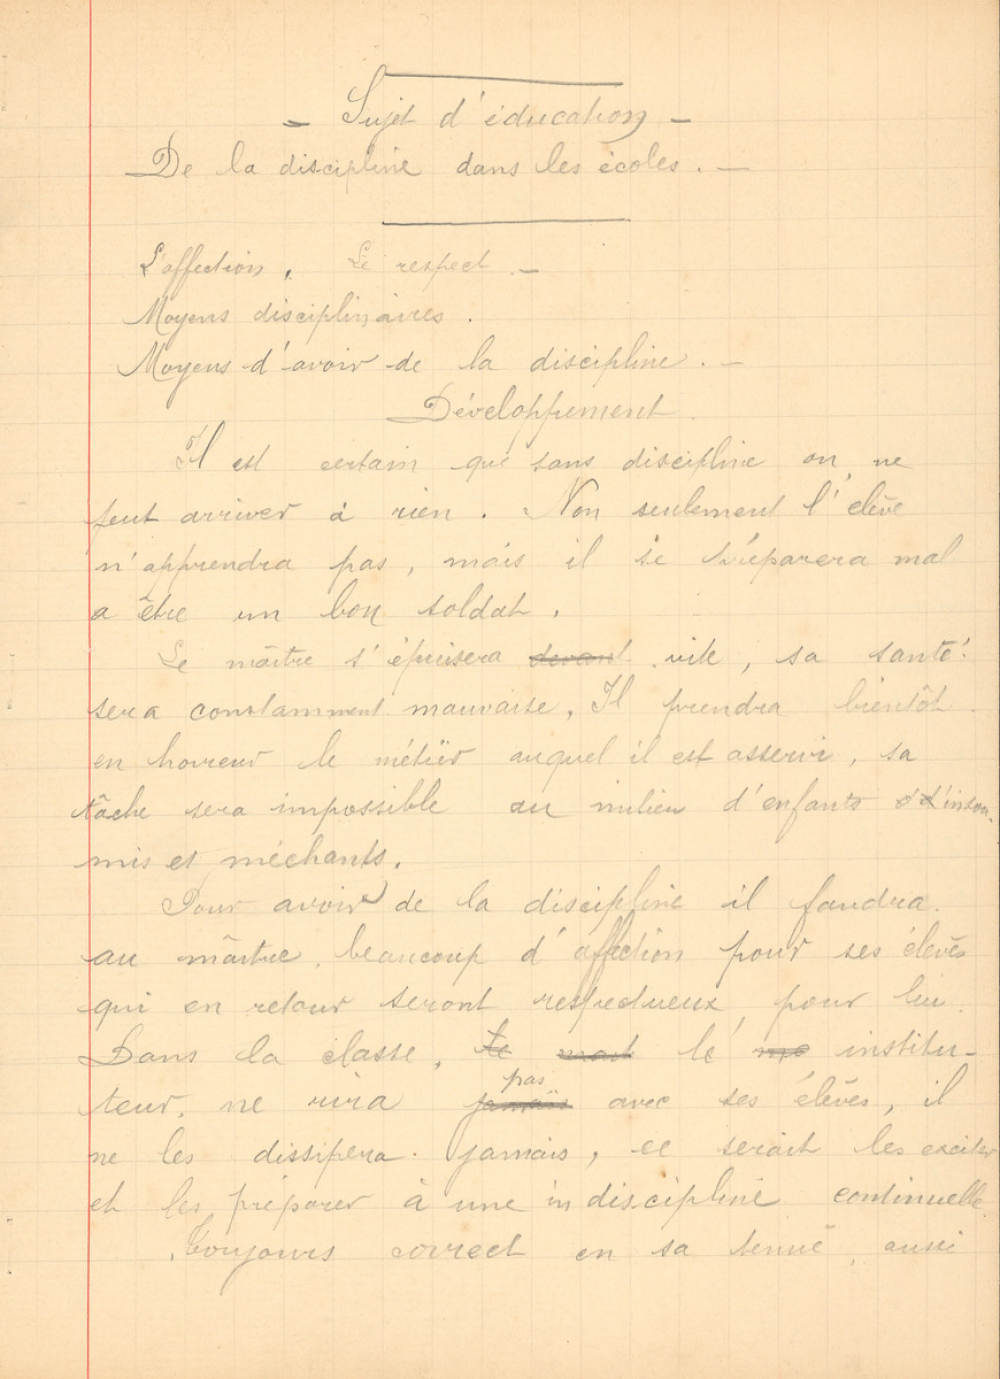 - Sujet d'éducation -
De la discipline dans les écoles. -
L'affection. Le respect. -
Moyens disciplinaires.
Moyens d'avoir de la discipline. -
Développement.
Il est certain que sans discipline on ne
peut arriver à rien. Non seulement l'élève
n'apprendra pas, mais il se préparera mal
a être un bon soldat.
Le maître s'épuisera devant vite, sa santé
sera constamment mauvaise, Il prendra bientôt
en horreur le métier auquel il est asservi, sa
tâche sera impossible au milieu d'enfants d'insou-
mis et méchants.
Pour avoir de la discipline il faudra
au maître, beaucoup d'affection pour ses élevès
qui en retour seront respectueux pour lui.
Dans la classe, le le institu-
pas
teur, ne rira jamais avec ses élèves, il
ne les dissipera jamais, ce serait les exciter
et les préparer à une indiscipline continuelle
Toujours correct en sa tenue, aussi